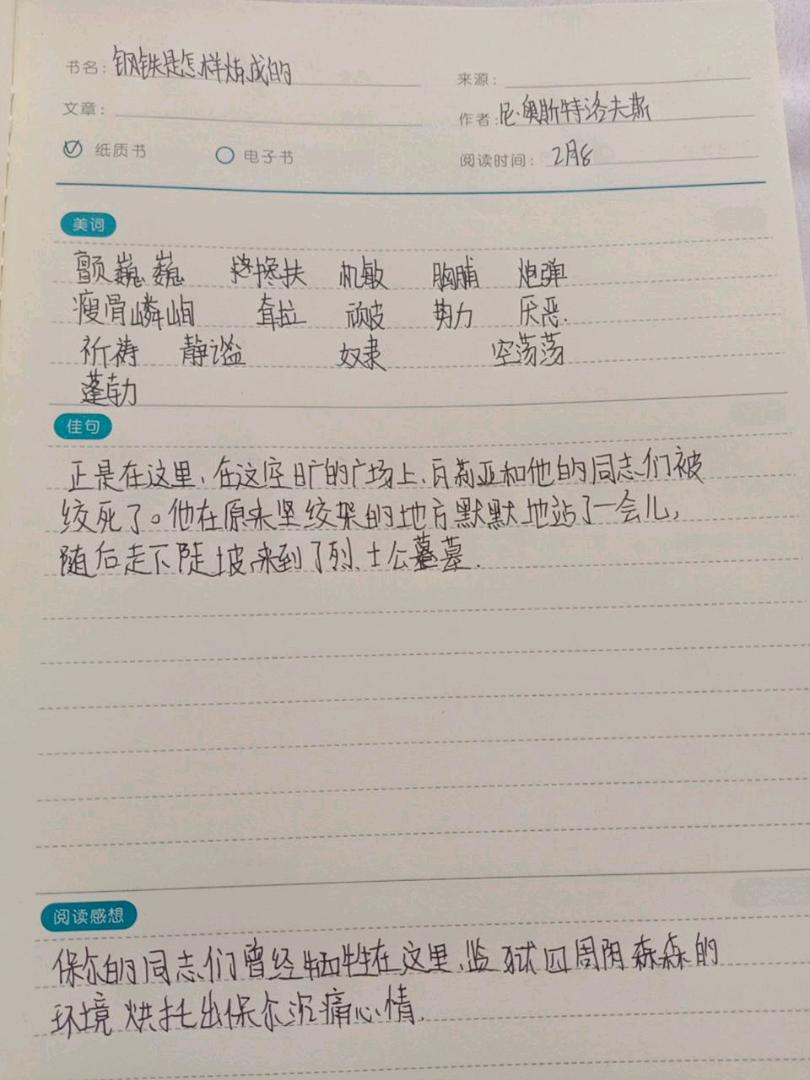 书名：钢铁是怎样炼成的
来源：
文章：
作者：尼·奥斯特洛夫斯
纸质书 电子书 阅读时间：2月8
美词
颤巍巍 搀扶 机敏 胸脯 炮弹
瘦骨嶙峋 耷拉 顽皮 势力 厌恶.
祈祷 静谧 奴隶 空荡荡
蓬勃
佳句
正是在这里、在这空旷的广场上、瓦莉亚和他的同志们被
绞死了。他在原来竖绞架的地方默默地站了一会儿，
随后走下陡坡,来到了烈士公墓.
阅读感想
保尔的同志们曾经牺牲在这里、监狱四周阴森森的
环境烘托出保尔沉痛心情.